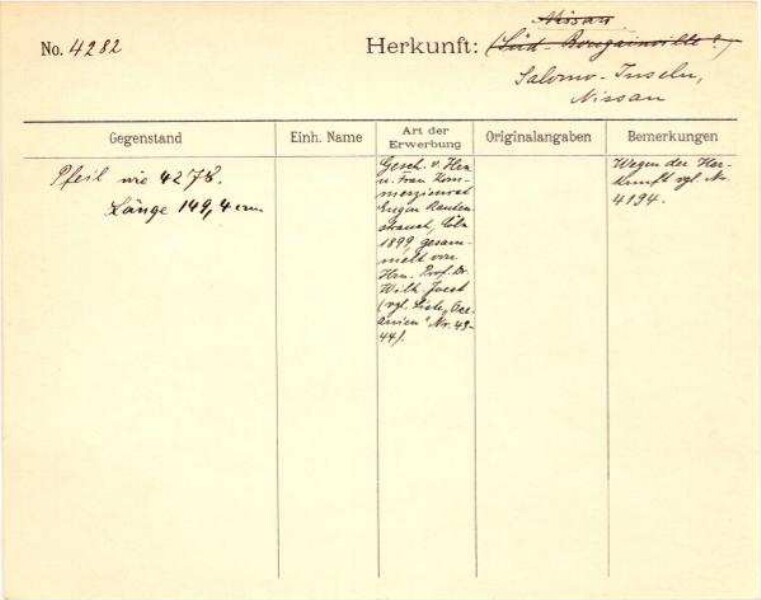 Nissan
No. 4282 Herkunft: (Süd-Bougainville?)
Salomo-Inseln,
Nissan
Gegenstand
Einh. Name
Art der
Erwerbung
Originalangaben
Bemerkungen
Pfeil wie 4278.
Länge 149,4 cm
Gesch. v. Hrn
u. Frau Kom-
merzienrat
Eugen Rauten-
strauch, Cöln
1899, gesam-
melt von
Hrn. Prof. Dr.
Wilh. Joest
(vgl. Liste „Oce-
anien" Nr. 43-
44).
Wegen der Her-
kunft vgl. Nr.
4194.